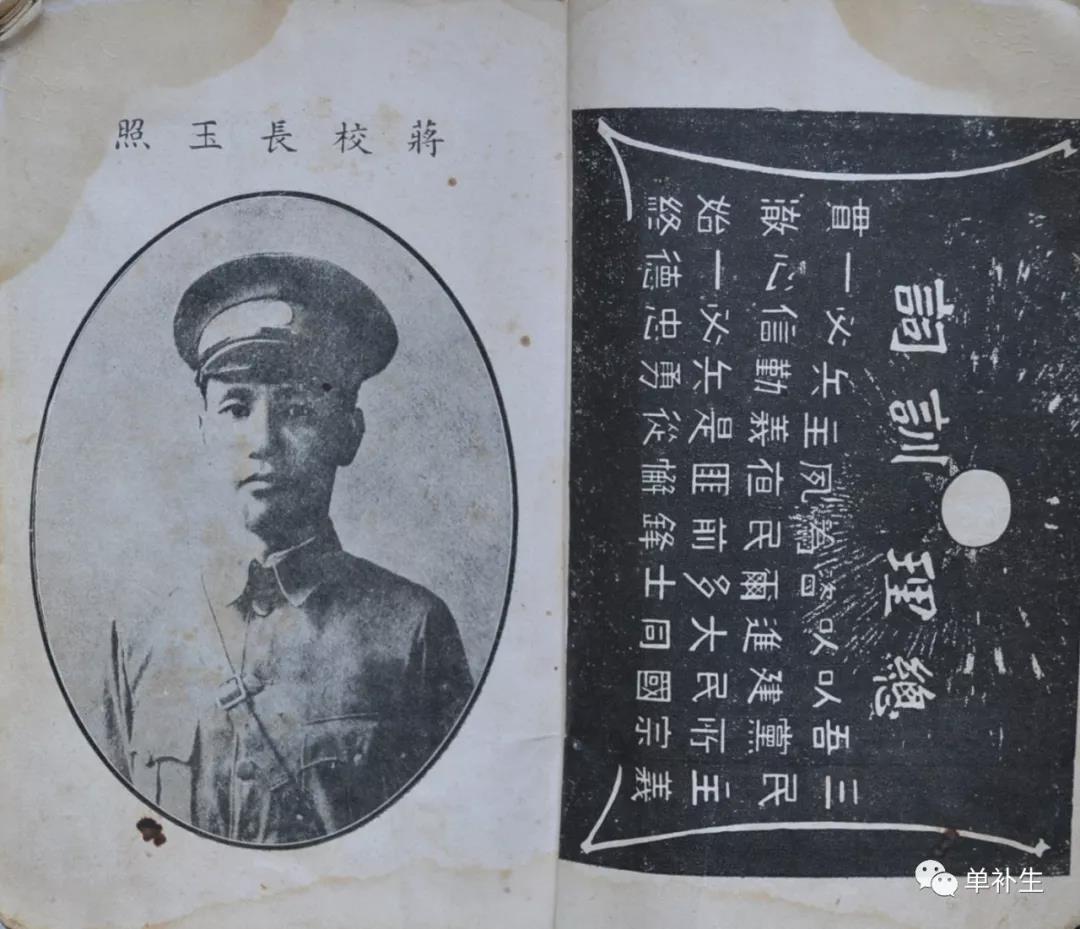 蔣校長玉照
總理訓詞
三民主義
吾黨所宗
以建民國
以進大同
咨爾多士
爲民前鋒
夙夜匪懈
主義是從
矢勤矢勇
必信必忠
一心一德
貫澈始終
单补生